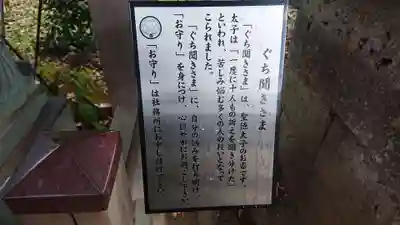 ぐち聞きさま
「ぐち聞きさま」は、聖徳太子のお姿です。
太子は「一度に十人もの訴えを聞き分けた」
といわれ、苦しみ悩む多くの人の救いとなって
こられました。
「ぐち聞きさま」に、自分の悩みを打ち明け、
「お守り」を身につけ、心
「お守り」は社務所に